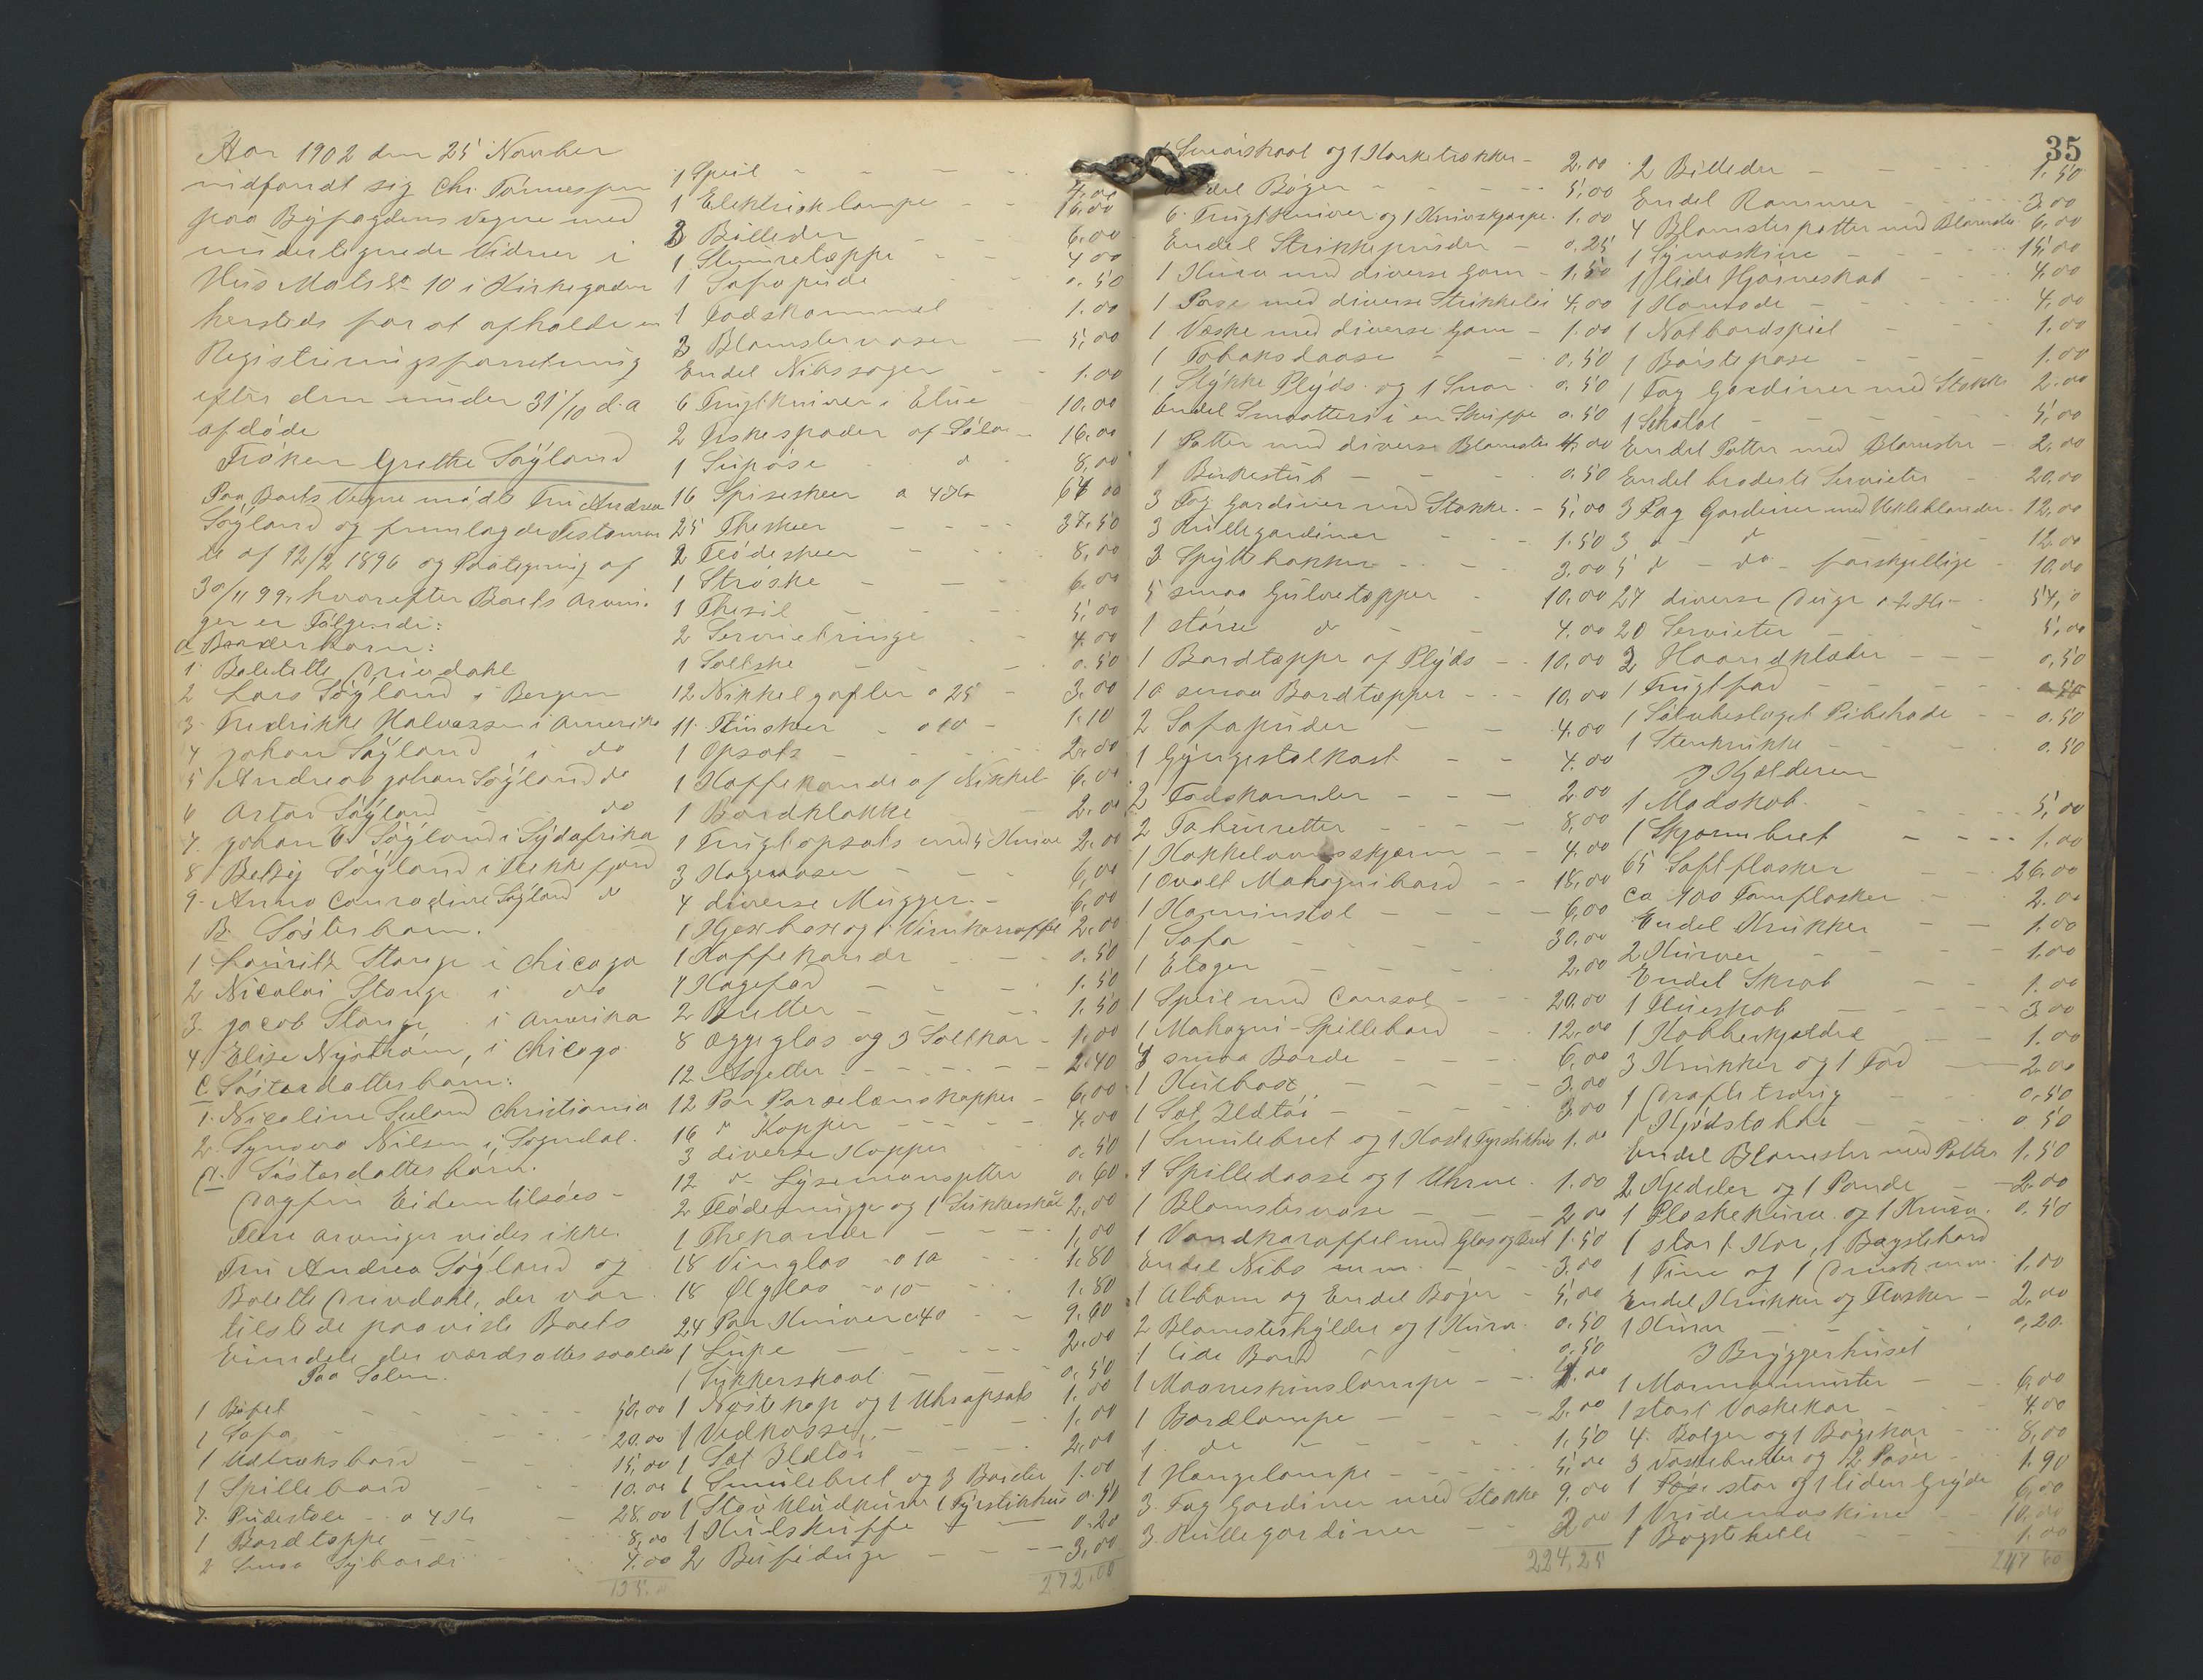 Aar 1902 den 25 November
indfandt sig Chr. Tønnessen
paa Byfogdens Vegne med
undertegnede Vidner i
Hus Mats No 10 i Kirkegaden
hersteds for at afholde en
Registreringsforretning
efter den under 31/10 d.a
afdøde
Frøken Grethe Søyland
Paa Boets Vegne mødte Fru Andrea
Søyland og fremlagde Testamen
te af 12/2 1896 og Paategning af
30/11 99, hvorefter Boets Arvin-
ger er Følgende:
a Broderbørn:
1 Boletette Drivdahl
2 Lars Søyland i Bergen
3 Fredrikke Halvorsen i Amerika
4 Johan Søyland i do
5 Andreas Johan Søyland do
6 Søyland do
7. Johan E. Søyland i Sydafrika
8 Betzy Søyland i Flekkefjord
9 Anna Conradine Søyland do
B. Søsterbørn.
1 Lauritz Stange i Chicago
2 Nicolai Stange i do
3. Jacob Stange i Amerika
4. Elise Nystrøm, i Chicago
C. Søsterdatterbørn:
1. Nicoline Christiania
2. Synnøva Nilsen i Sogndal.
D. Søsterdatterbarn.
Dagfin Eidem tilsøes-
Flere arvinger vides ikke.
Fru Andrea Søyland og
Bolette Drivdahl, der var
tilstede paaviste Boets
Eiendele der værdsattes saaledes
Paa Salen.
1 Bøfet 50,00
1 Sofa 20.00
1 Udtræksbord 15,00
1 Spillebord 10.00
7. Pudestole a 4 Kr 28.00
1 Bordteppe 8,00
2 Smaa Syborde 4.00
1 Speil 4,00
1 Elektrisk lampe 16,00
3 Billeder 6.00
1 Stueteppe 4 00
1 Sofapude 0.50
1 Fodskammel 1.00
3 Blomstervaser 5,00
Endel Nibssager 1.00
6 Frugtkniver i Etue 10.00
2 Fiskespader af Sølv 16,00
1 Suppøse do 8,00
16 Spiseskeer a 4 Kr 64 00
25 Theskeer 37,50
2 Flødeskeer 8,00
1 Strøske 6.00
1 Thesil 5,00
2 Servietringe 4.00
1 Saltske 0.50
12. Nikkelgafler a 25 3,00
11. Tinskeer a 10 1.10
1 Opsats 2.00
1 Kaffekande af Nikkel 6.00
1 Bordklokke 2.00
1 Frugtopsats med 5 Knive 2.00
3 Kagevaser 6,00
4 diverse Mugger 6.00
1 Kjexbox og 1 Vinkaraffel 2.00
1 Kaffekande 0.50
1 Kagefad 1.50
2 Butter 1.50
8 Æggeglas og 3 Saltkar 1.00
12 Asjetter 2.40
12 Par Porselenskopper 6,00
16 " Kopper 4.00
3 diverse Kopper 0.50
12 do Lysemansjetter 0.60
2 Flødemugge og 1 Sukkerskaal 2,00
1 Thekande 1,00
18 Vinglas a 10 1.80
18 Ølglas a 10 1.80
24 Par Kniver a 40 9.60
1 Lupe 2.00
1 Sukkerskaal 0,50
1 Nøstekop og 1 Uhropsats 1.00
1 Vedkasse 1.00
1 Sæt Ildtøi 2.00
1 Smulebret og 3 Børster 1.00
1 Støvkludkurv 1 Fyrstikhus 0.50
1 Hulskuffe 0.20
2 Bufeduge 3,00
272.00
1 Smørskaal og 1 Korketrækker 2.00
Endel Bøger 5,00
6 Frugtkniver og 1 Knivskjærpe 1.00
Endel Strikkepinder 0.25
1 Kurv med diverse Garn 1,50
1 Pose med diverse Strikketøi 4,00
1 Væske med diverse Garn 1.00
1 Tobaksdaase 0.50
1 Stykke Plyds og 1 Snor 0.50
Endel Smaatteri i en Skuffe 0.50
1 Potter med diverse Blomster 4,00
1 Birkestub 0.50
3 Fag Gardiner med Stokke 5,00
3 Rullegardiner 1.50
3 Spyttebakker 3.00
5 smaa Gulvtepper 10,00
1 større do 4.00
1 Bordteppe af Plyds 10,00
10 smaa Bordtepper 10,00
2 Sofapuder 4.00
1 Gyngestolkast 4.00
2 Fodskamler 2.00
2 Taburetter 8,00
1 Kakkelovnsskjerm 4.00
1 ovalt Mahognibord 18,00
1 Kaminstol 6,00
1 Sofa 30,00
1 Etager 2.00
1 Speil med Consol 20.00
1 Mahogni-Spillebord 12,00
3 smaa Borde 6,00
1 Kulbox 3,00
1 Sæt Ildtøi 3,00
1 Smulebret og 1 Kost, Fyrstikhus 1.00
1 Spilledaase og 1 Uhrne 1.00
1 Blomstervase 2.00
1 Vandkaraffel med Glas og Bret 1.50
Endel Nibs m.m. 3.00
1 Album og Endel Bøger 5,00
2 Blomsterhylder og 1 Kurv 0.50
1 lide Bord 0.50
1 Maaneskinslampe 1.00
1 Bordlampe 2.00
1 do 1,50
1 Hængelampe 5,00
3. Fag Gardiner med Stokke 9.00
3. Rullegardiner 2 00
224,25
35
2 Billeder 1,50
Endel Rammer 3.00
4 Blomsterpotter med Blomster 6,00
1 Symaskine 15,00
1 lide Hjørneskab 4.00
1 Komode 4.00
1 Natbordspeil 1.00
1 Børstepose 1.00
1 Fag Gardiner med Stokke 2.00
1 Schatol 5,00
Endel Potter med Blomster 2.00
Endel broderte Servietter 20,00
3 Fag Gardiner med Heklebonder 12.00
3 do do 12.00
5 do - do - forskjellige 10.00
27 diverse Duge a 2 Kr 54,0
20 Servietter 5,00
2 Haandklæder 0,50
1 Frugtfad
1 Sølvbeslaget Pibehode 0.50
1 Stenkrukke 0.50
I Kjælderen
1 Madskab 5,00
1 Skjærmbret 1.00
65 Saftflasker 26.00
ca 100 Tomflasker 2.00
Endel Krukker 1.00
2 Kurver 1.00
Endel Skrab 1.00
1 Flueskab 3,00
1 Kobberkjedel 1.00
3 Krukker og 1 Fad 2.00
1 0,50
1 Kjødstokke 0 50
Endel Blomster med Potter 1.50
2 Kjedeler og 1 Pande 2.00
1 Flaskekurv og 1 Kurv 0.50
1 stort Kar, 1 Bagstebord
1 Tine og 1 Dunk m.m. 1.00
Endel Krukker og Flasker 2.00
1 Kurv 0,20.
I Bryggerhuset
1 Marmormorter 6,00
1 stort Vaskekar 4.00
4 Balger og 1 Bøgekar 8,00
3 Vaskebretter og 2 Poser 1.90
1 stor og 1 liden Gryde 6.00
1 Vridemaskine 10,00
1 Bagstehelle 1.00
247 60